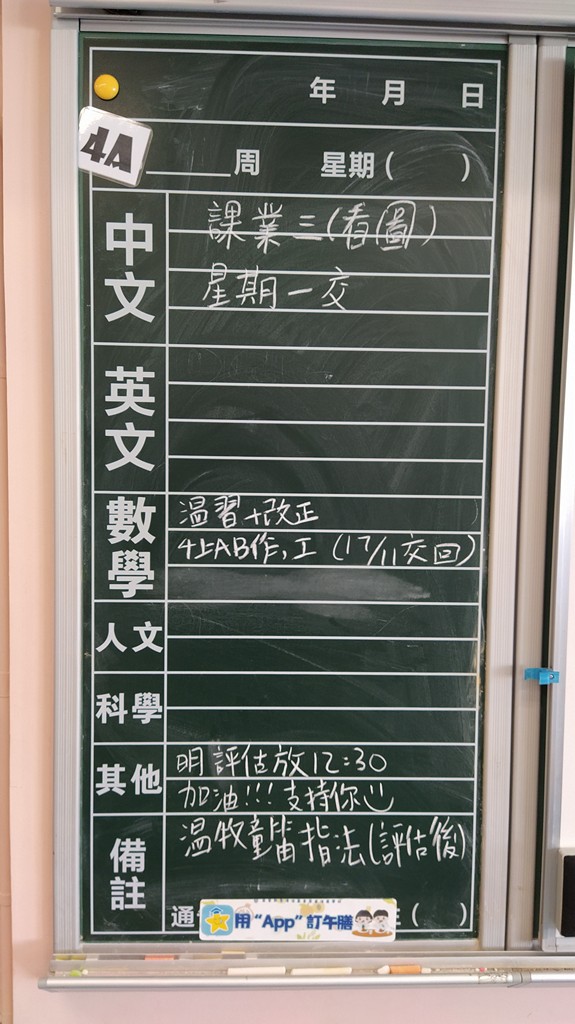 年 月 日
4A
周 星期( )
中文
課業三(看圖)
星期一交
英文
數學
温習+改正
4上AB作,工 (17/11交回)
人文
科學
其他
明評估放12:30
加油!!! 支持你
備註
温牧童笛指法(評估後)
通
用“App”訂午膳
( )